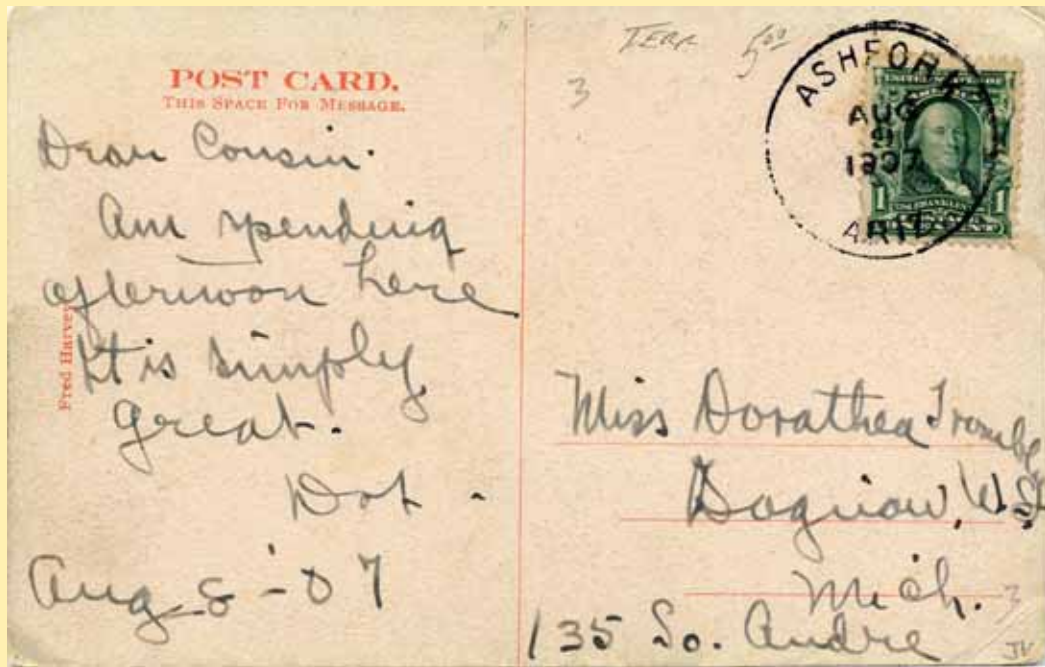 POST CARD.
THIS SPACE FOR MESSAGE.
Dear Cousin.
Am spending
afternoon here
It is simply
great.
Dot.
Aug 8-07
Fred Harvey
TERR 500
3
ASHFORK
AUG
1907
ARIZ
1 1
Miss Dorathea Trombley
Saginaw, W.S.
Mich.
135 So. Andre
3
JV